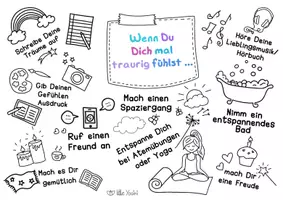 Wenn Du
Dich mal
traurig fühlst ...
Schreibe Deine
Träume auf
Höre Deine
Lieblingsmusik/
Hörbuch
Gib Deinen
Gefühlen
Ausdruck
Mach einen
Spaziergang
Nimm ein
entspannendes
Bad
Ruf einen
Freund an
Entspanne Dich
bei Atemübungen
oder Yoga
Mach es Dir
gemütlich
mach Dir
eine Freude